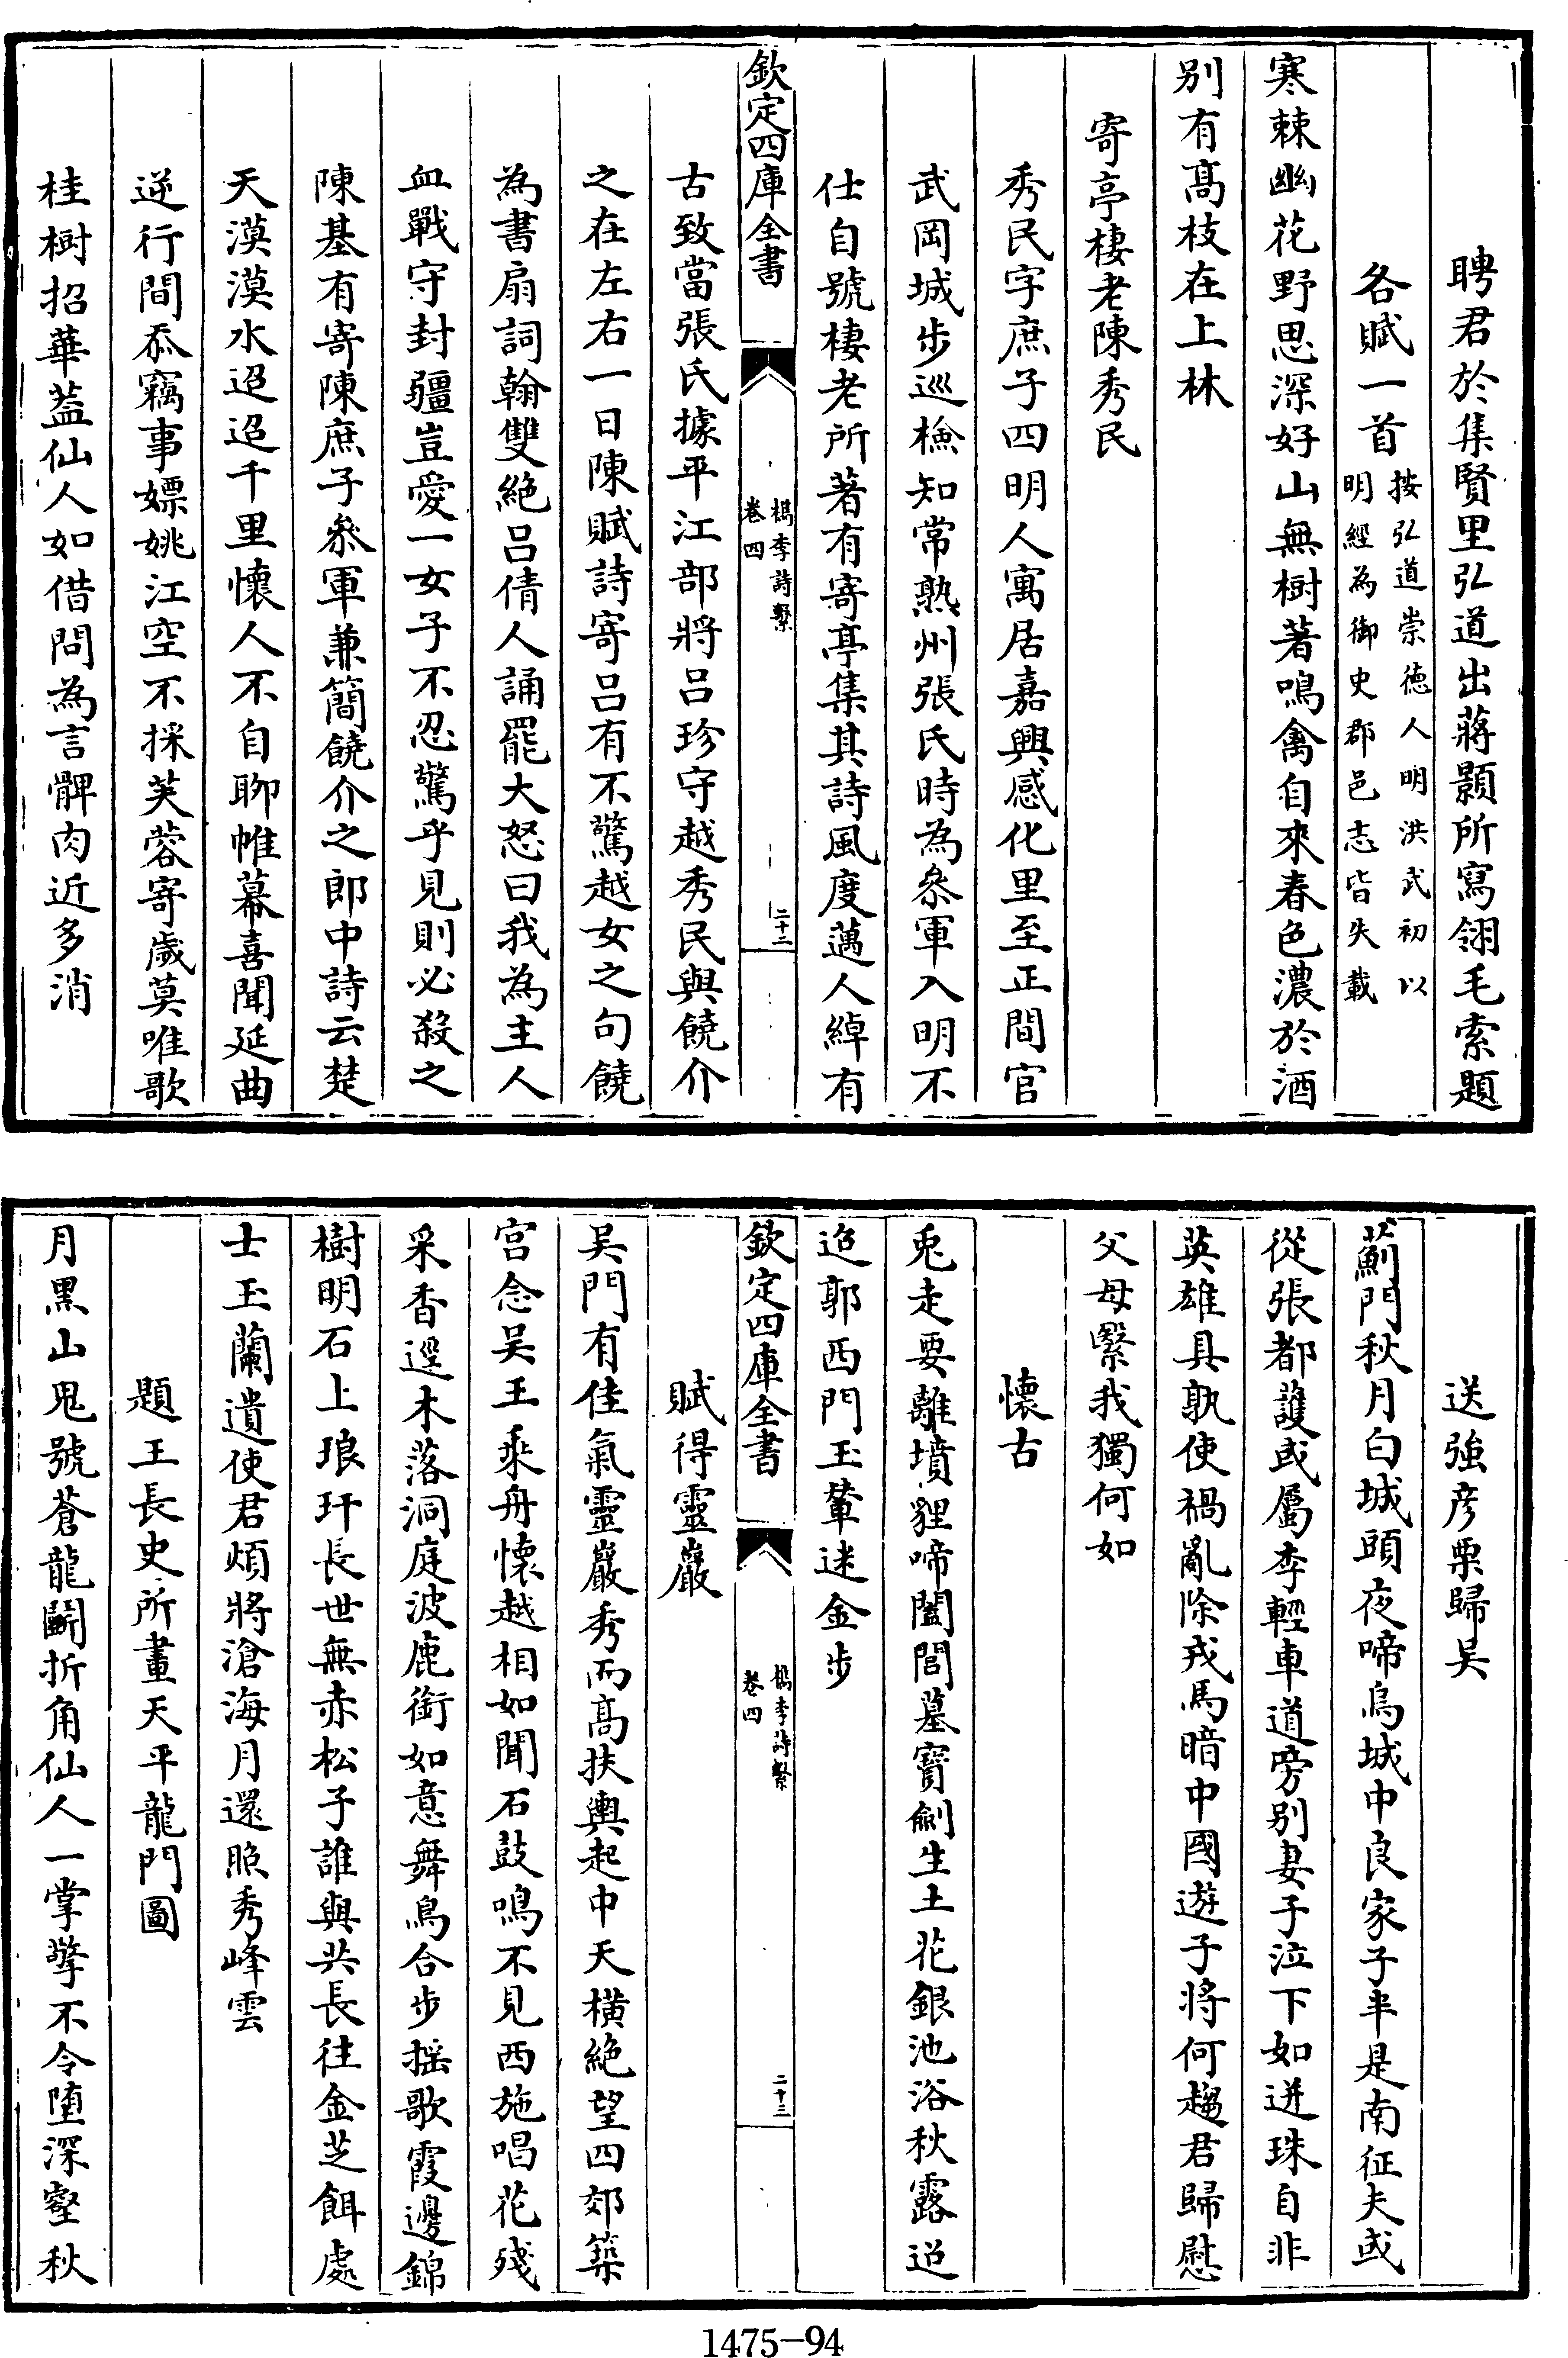 聘君於集賢里弘道出蔣顥所寫翎毛索題
各賦一首按弘道崇德人明洪武初以
明經為御史郡邑志皆失載
寒棘幽花野思深好山無樹著鳴禽自來春色濃於酒
别有髙枝在上林
寄亭棲老陳秀民
秀民字庶子四明人寓居嘉興感化里至正間官
武岡城步巡檢知常熟州張氏時為叅軍入明不
仕自號棲老所著有寄亭集其詩風度邁人綽有
欽定四庫全書
檇李詩繫
卷四
二十二
古致當張氏據平江部將吕珍守越秀民與饒介
之在左右一日陳賦詩寄吕有不驚越女之句饒
為書扇詞翰雙絶吕倩人誦罷大怒曰我為主人
血戰守封疆豈愛一女子不忍驚乎見則必殺之
陳基有寄陳庶子叅軍兼簡饒介之郎中詩云楚
天漠漠水迢迢千里懷人不自聊帷幕喜聞延曲
逆行間忝竊事嫖姚江空不採芙蓉寄歲莫唯歌
桂樹招華葢仙人如借問為言髀肉近多消
送強彦栗歸吴
薊門秋月白城頭夜啼烏城中良家子半是南征夫或
從張都護或屬李輕車道旁别妻子泣下如迸珠自非
英雄具孰使禍亂除戎馬暗中國遊子将何趨君歸慰
父母繄我獨何如
懷古
兎走要離墳貍啼闔閭墓寶劍生土花銀池浴秋露迢
迢郭西門玉輦迷金步
欽定四庫全書
檇李詩繫
卷四
二十三
賦得靈巖
吴門有佳氣靈巖秀而髙扶輿起中天横絶望四郊築
宫念吴王乘舟懷越相如聞石鼓鳴不見西施唱花殘
采香逕木落洞庭波鹿銜如意舞鳥合步摇歌霞邊錦
樹明石上琅玕長世無赤松子誰與共長往金芝餌處
士玉蘭遺使君煩將滄海月還照秀峰雲
題王長史所畫天平龍門圖
月黒山鬼號蒼龍鬭折角仙人一掌擎不令墮深壑秋
1475-94